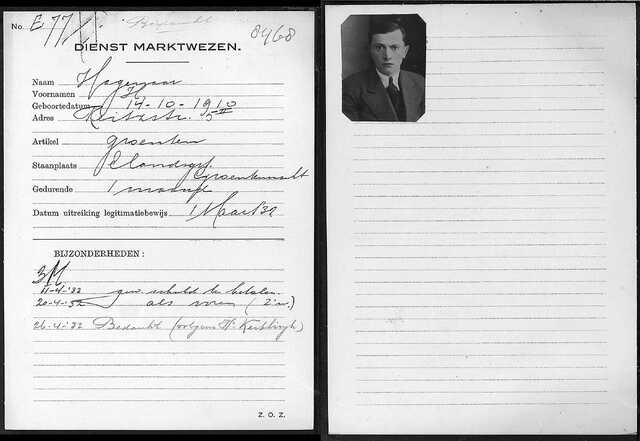 No. E 77
Bedankt
8468
DIENST MARKTWEZEN.
Naam Hagenaar
Voornamen H
Geboortedatum 14-10-1910
Adres 5 II
Artikel groenten
Staanplaats Elandsgr.
Groentenmarkt
Gedurende 1 maand
Datum uitreiking legitimatiebewijs 1 Maart '32
BIJZONDERHEDEN:
11-4-'32 gew. schuld te betalen.
20-4-'32 als voren (2 w.)
26-4-'32 Bedankt (volgens Hr.
Z. O. Z.